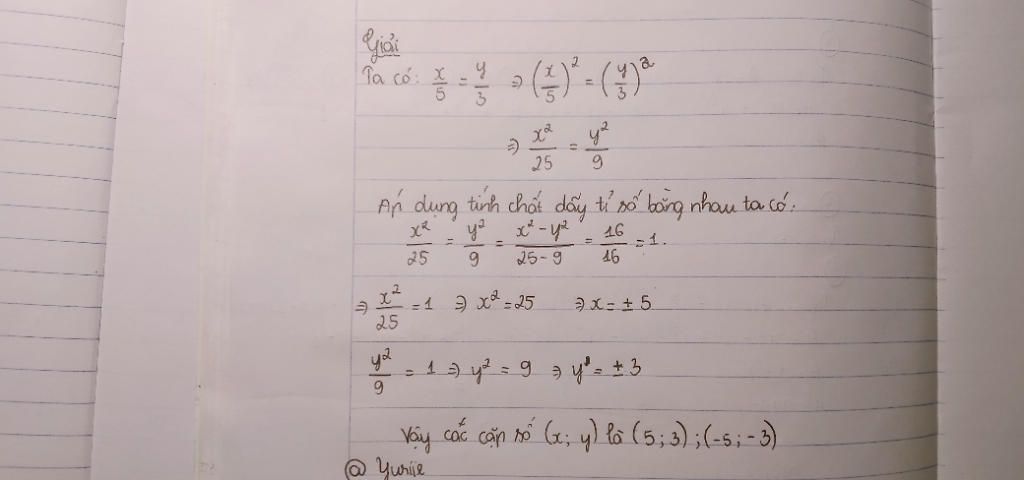 Giải
Ta có: x/5 = y/3 ⇒ (x/5)² = (y/3)²
⇒ x²/25 = y²/9
Áp dụng tính chất dãy tỉ số bằng nhau ta có:
x²/25 = y²/9 = (x² - y²)/(25 - 9) = 16/16 = 1.
⇒ x²/25 = 1 ⇒ x² = 25 ⇒ x = ± 5
y²/9 = 1 ⇒ y² = 9 ⇒ y = ± 3
Vậy các cặp số (x; y) là (5; 3); (-5; -3)
@ Yuriie